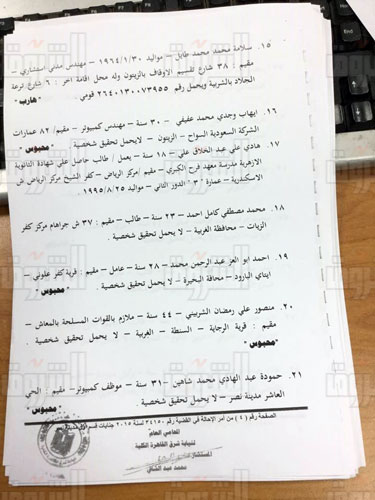 ١٥. سلامة محمد محمد طايل – مواليد ١٩٦٤/١/٣٠ – مهندس مدني استشاري –
مقيم : ٣٨ شارع تقسيم الاوقاف بالزيتون وله محل اقامة اخر : ٦ شارع ترعة
الجلاد بالشرابية ويحمل رقم ٢٦٤٠١٣٠٠٧٣٩٥٥ قومي . " هارب "
١٦. ايهاب وجدي محمد عفيفي – ٣٠ سنة – مهندس كمبيوتر – مقيم / ٨٢ عمارات
الشركة السعودية السواح – الزيتون – لايحمل تحقيق شخصية . " محبوس "
١٧. هادي علي عبد الخلاق علي – ١٨ سنة – يعمل / طالب حاصل علي شهادة الثانوية
الازهرية مدرسة معهد فرح الكبري – مقيم / مركز الرياض – كفر الشيخ مركز الرياض ش
الاسكندرية – عمارة "٣" الدور الثاني – مواليد ١٩٩٥/٨/٢٥ .
١٨. محمد مصطفي كامل احمد – ٢٣ سنة – طالب – مقيم : ٣٧ ش جراهام مركز كفر
الزيات – محافظة الغربية – لا يحمل تحقيق شخصية .
١٩. احمد ابو العز عبد الرحمن محمد – ٢٨ سنة – عامل – مقيم : قرية كفر علوني –
ايتاي البارود – محافة البحيرة – لا يحمل تحقيق شخصية . " محبوس "
٢٠. منصور علي رمضان الشربيني – ٤٤ سنة – ملازم بالقوات المسلحة بالمعاش –
مقيم : قرية الرجاية – السنطة – الغربية – لا يحمل تحقيق شخصية .
"محبوس"
٢١. حمودة عبد الهادي محمد شاهين – ٣١ سنة – موظف كمبيوتر – مقيم : الحي
العاشر مدينة نصر – لا يحمل تحقيق شخصية . " محبوس "
الصفحة رقم ( ٤ ) من أمر الإحالة في القضية رقم ٢٤١٥٠ لسنة ٢٠١٥ جنايات قسم
المحامي العام
لنيابة شرق القاهرة الكلية
المستشار
محمد عبد الشافي
الشروق